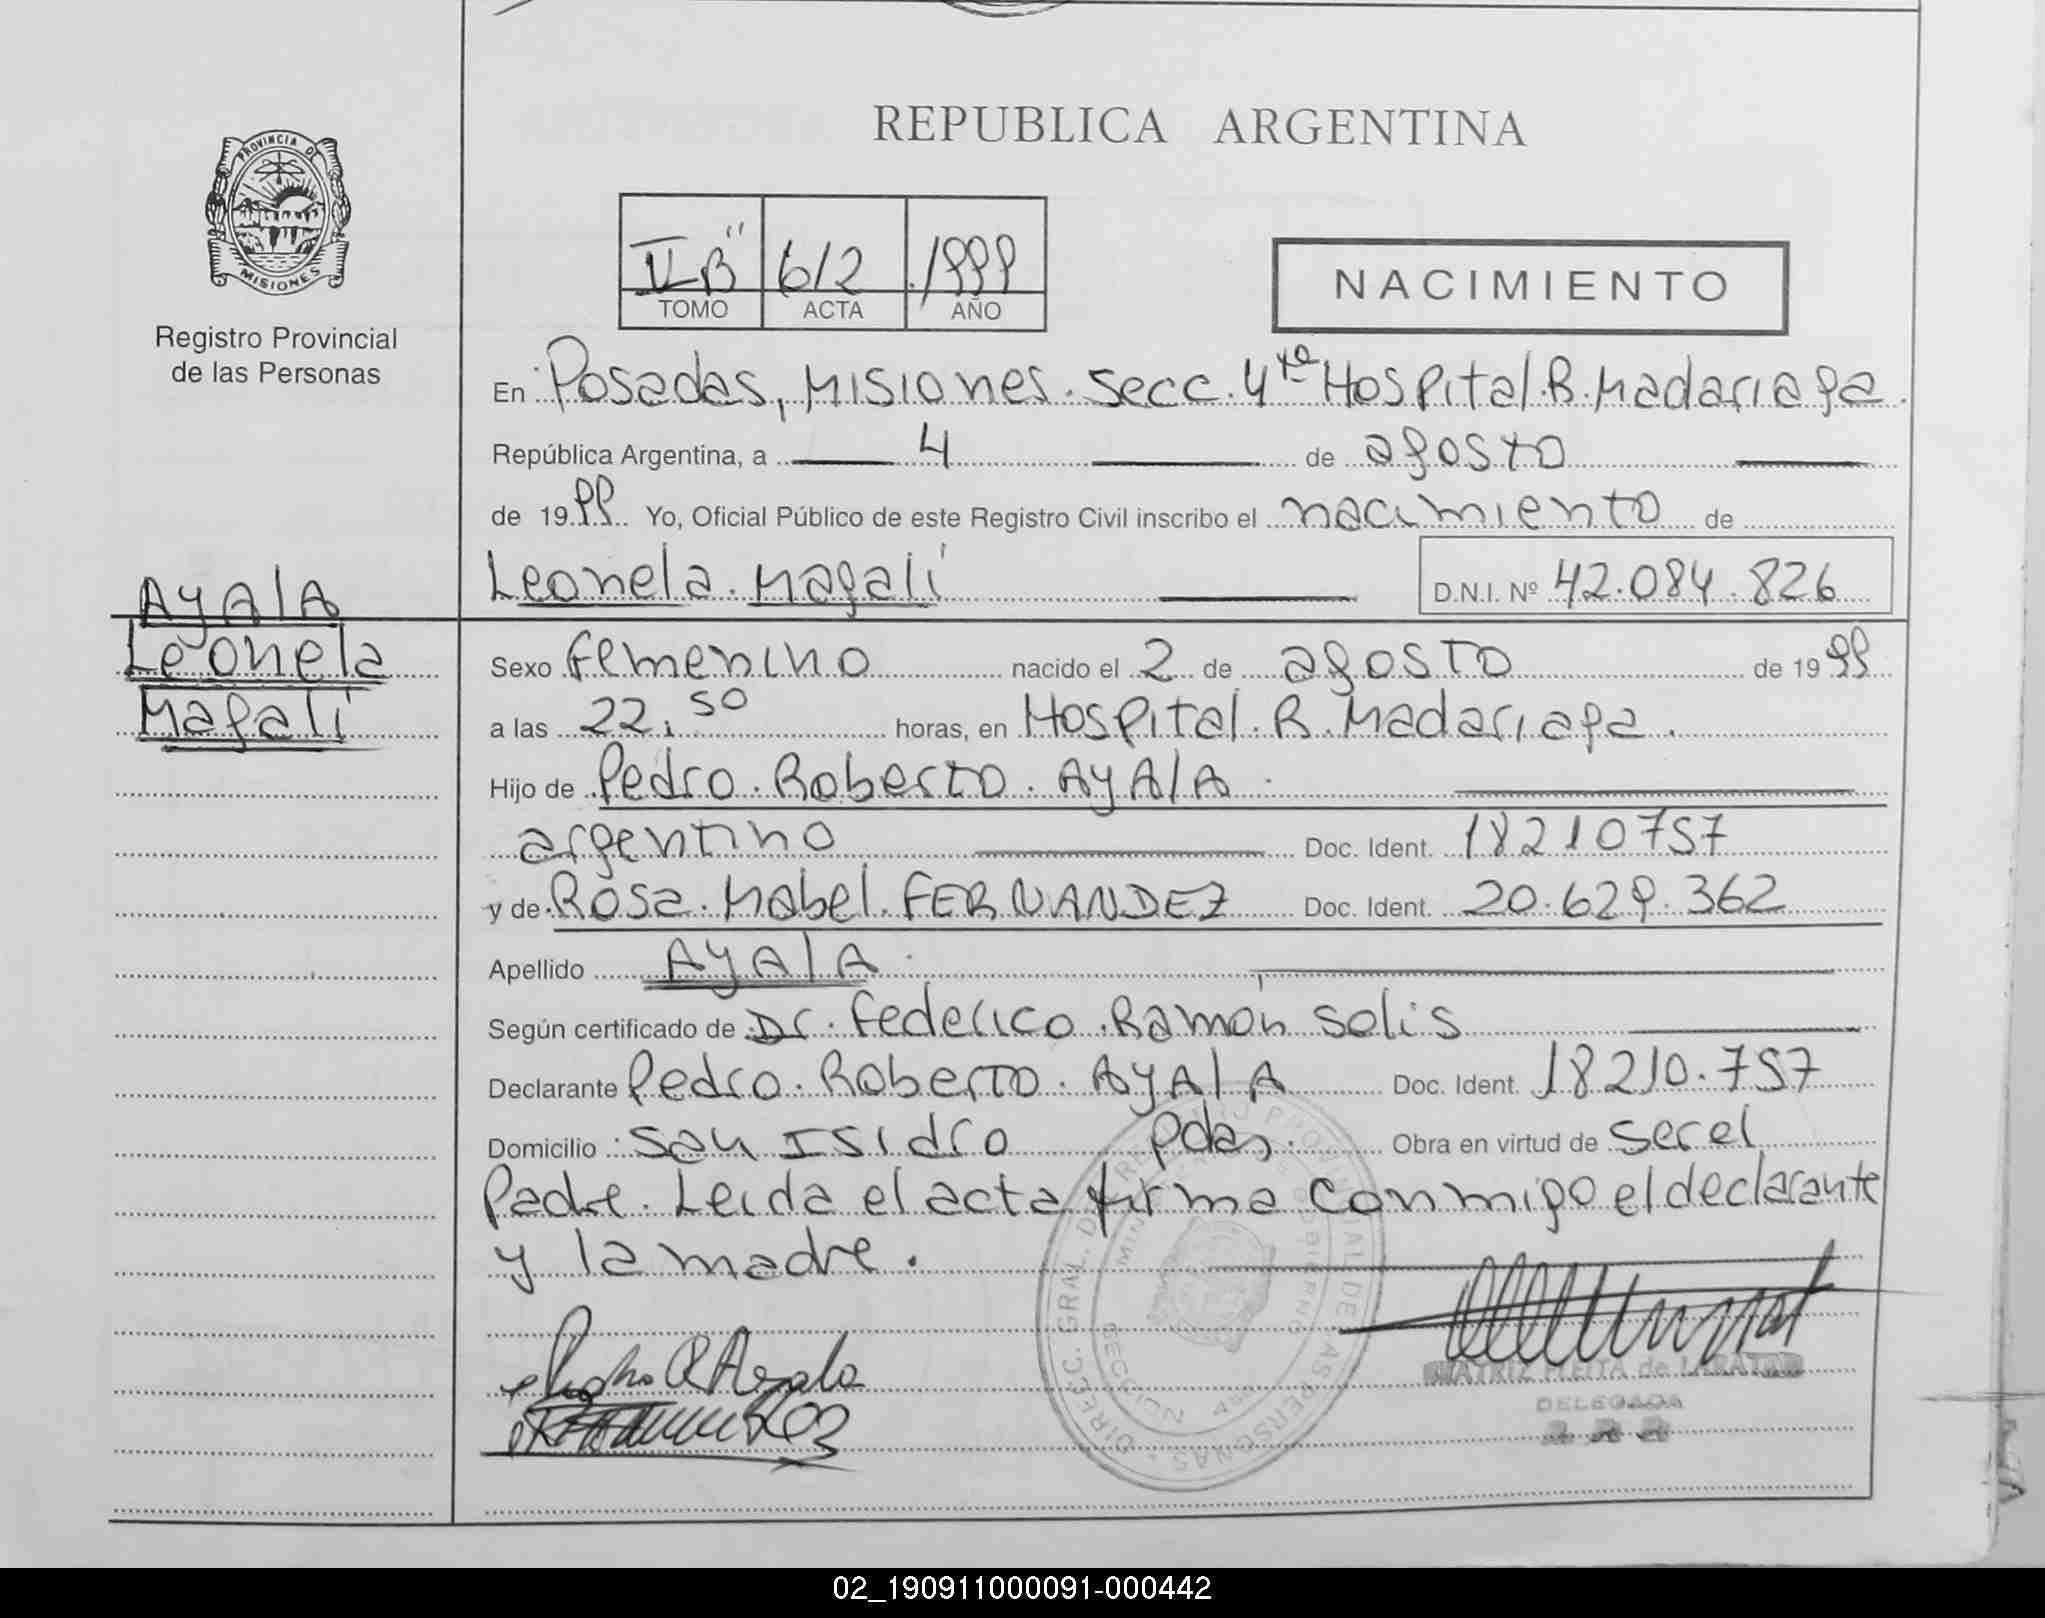 REPUBLICA ARGENTINA
PROVINCIA DE
MISIONES
Registro Provincial
de las Personas
612 1999
TOMO ACTA AÑO
NACIMIENTO
En Posadas, Misiones. Secc. 4ta Hospital. R. Madariaga.
República Argentina, a 4 de agosto
de 1999 Yo, Oficial Público de este Registro Civil inscribo el nacimiento de
Leonela. Magalí D.N.I. Nº 42.084.826
AyAlA
Leonela
Magalí
Sexo femenino nacido el 2 de agosto de 1999
a las 22,50 horas, en Hospital. R. Madariaga.
Hijo de Pedro. Roberto. AyAlA.
argentino Doc. Ident. 18210757
y de Rosa. Mabel. FERNANDEZ Doc. Ident. 20.629.362
Apellido AyAlA.
Según certificado de Dr. Federico. Ramón Solis
Declarante Pedro. Roberto. AyAlA Doc. Ident. 18210.757
Domicilio San Isidro Pdas, Obra en virtud de ser el
Padre. Leida el acta firma conmigo el declarante
y la madre.
DIREC. GRAL. DEL REGISTRO PROVINCIAL DE LAS PERSONAS
SECCION 4ta
DELEGADA
02_190911000091-000442